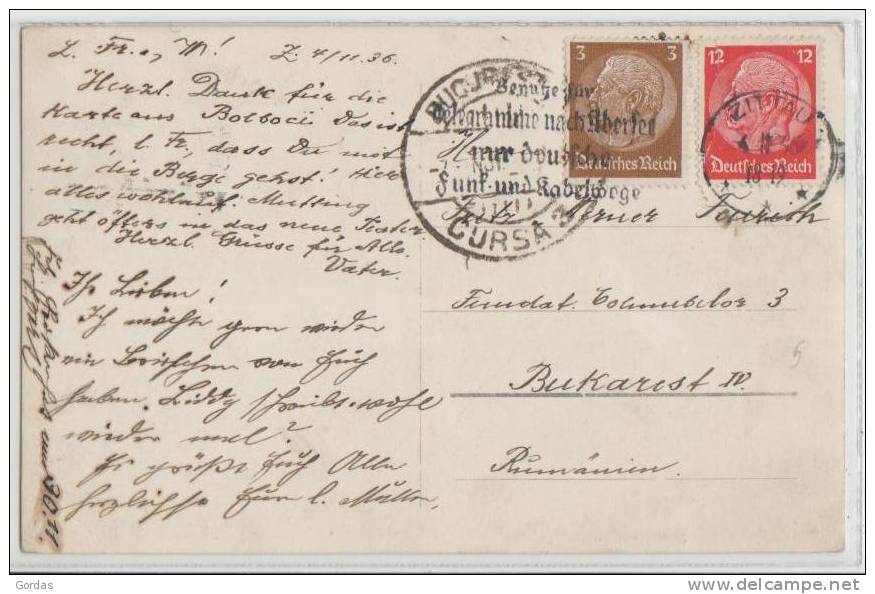 L. Fr. , M! Z. 4/11.36.
Herzl. Dank für die
Karte aus Bolboci Das ist
recht, l. Fr., dass Du mit
in die Berge gehst! Hier
alles wohlauf. Mutting
geht öfters in das neue Teater
Herzl. Grüsse für Alle.
Vater.
Ihr Lieben!
Ich möchte gern wieder
ein Briefchen von Euch
haben. Liddy schreibt wohl
wieder mal?
Es grüßt Euch Alle
herzlichst Eure l. Mutter.
30.11.
3
12
Deutsches Reich
Deutsches Reich
BUCUREȘTI
CURSA
Benutze für
Telegramme nach Übersee
nur deutsche
Funk- und Kabelwege
ZITTAU
Fundat. Columbelor 3
Bukarest IV.
Rumänien.
5
Gordas
delcampe.net